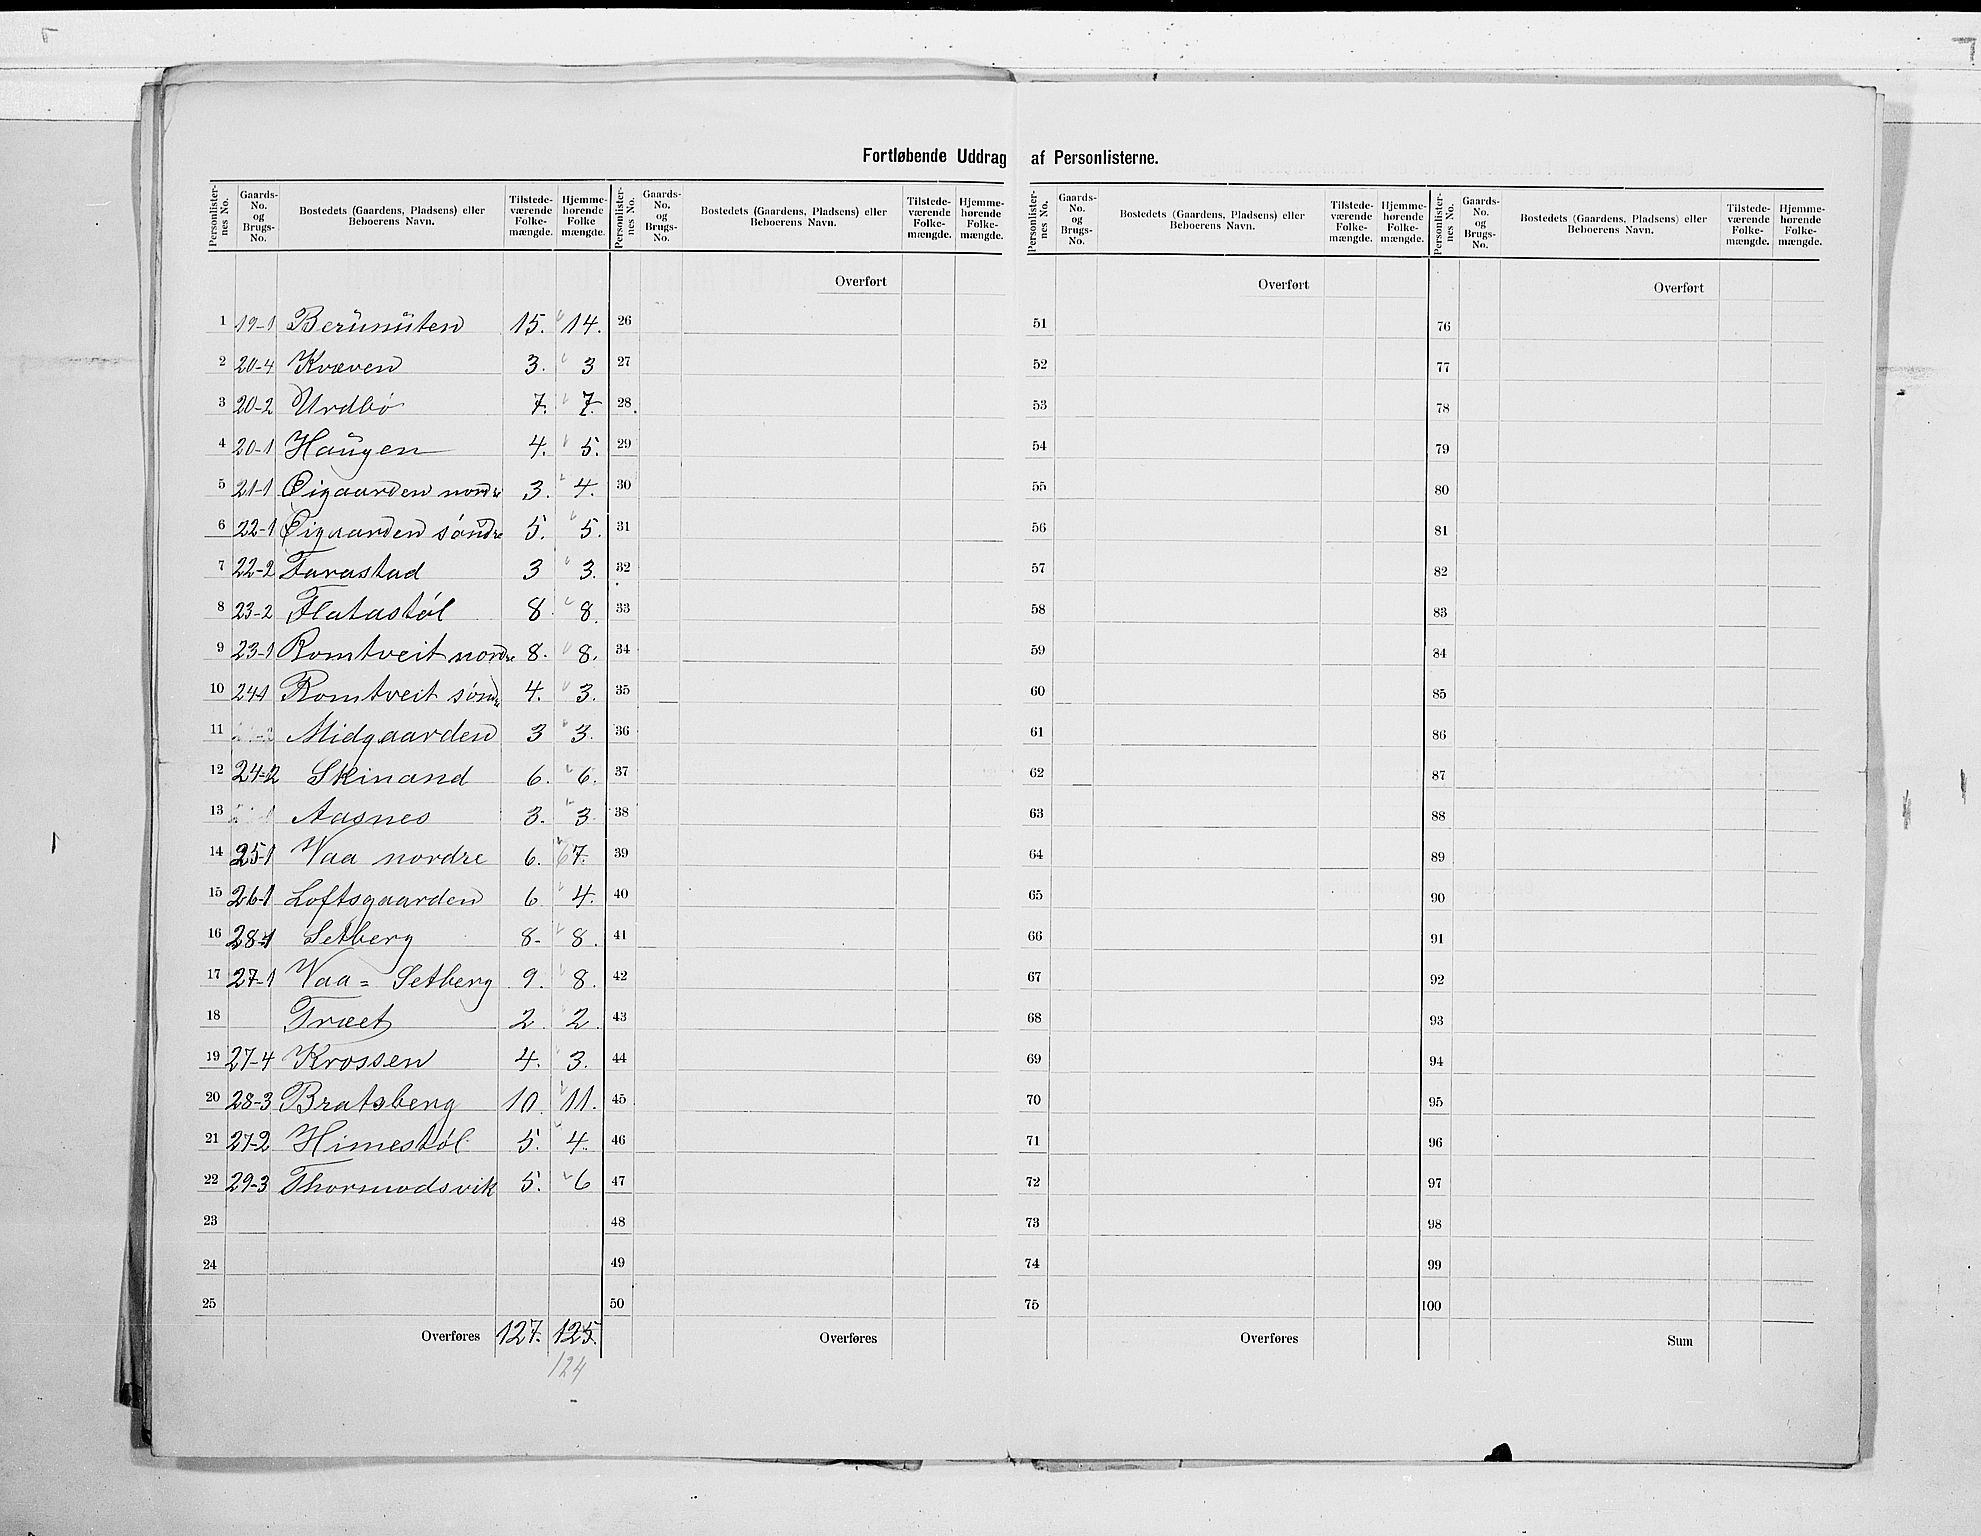 Fortløbende Uddrag af Personlisterne.
Personlisternes No. Gaards-No. og Brugs-No. Bostedets (Gaardens, Pladsens) eller Beboerens Navn. Tilstedeværende Folkemængde. Hjemmehørende Folke mængde.
Personlisternes No. Gaards-No. og Brugs-No. Bostedets (Gaardens, Pladsens) eller Beboerens Navn. Tilstedeværende Folkemængde. Hjemmehørende Folkemængde.
Personlisternes No. Gaards-No. og Brugs-No. Bostedets (Gaardens, Pladsens) eller Beboerens Navn. Tilstedeværende Folkemængde. Hjemmehørende Folkemængde.
Personlisternes No. Gaards-No. og Brugs-No. Bostedets (Gaardens, Pladsens) eller Beboerens Navn. Tilstedeværende Folkemængde. Hjemmehørende Folkemængde.
Overført Overført Overført
1 19-1 Berünüten 15. 14. 26 51 76
2 20-4 Kvæven 3. 3 27 52 77
3 20-2 Urdbö 7. 7. 28 53 78
4 20-1 Haugen 4. 5. 29 54 79
5 21-1 Øigaarden nordre 3. 4. 30 55 80
6 22-1 Øigaarden søndre 5. 5. 31 56 81
7 22-2 Farastad 3 3. 32 57 82
8 23-2 Flatastøl 8. 8. 33 58 83
9 23-1 Romtveit nordre 8. 8. 34 59 84
10 24-1 Romtveit søndre 4. 3. 35 60 85
11 Midgaarden 3 3. 36 61 86
12 24-2 Skinand 6. 6. 37 62 87
13 Aasnes 3. 3 38 63 88
14 25-1 Vaa nordre 6. 7. 39 64 89
15 26-1 Loftsgaarden 6 4. 40 65 90
16 28-1 Setberg 8. 8. 41 66 91
17 27-1 Vaa = Setberg 9. 8. 42 67 92
18 Træet 2. 2. 43 68 93
19 27-4 Krossen 4. 3. 44 69 94
20 28-3 Bratsberg 10. 11. 45 70 95
21 27-2 Himestøl 5. 4. 46 71 96
22 29-3 Thormodsvik 5. 6 47 72 97
23 48 73 98
24 49 74 99
25 50 75 100
Overføres 127. 125. Overføres Overføres Sum
124